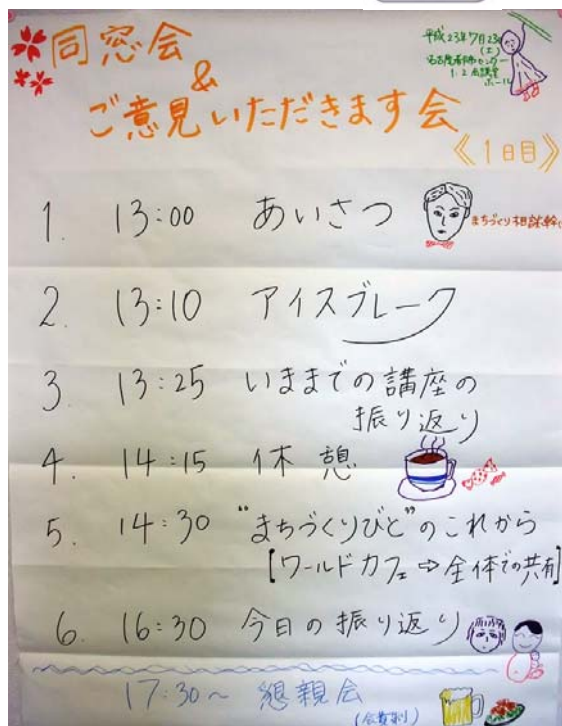 同窓会
&
ご意見いただきます会
平成23年7月23
(土)
ホール
《1日目》
1. 13:00 あいさつ
まちづくり相談幹
2. 13:10 アイスブレーク
3. 13:25 いままでの講座の
振り返り
4. 14:15 休憩
5. 14:30 "まちづくりびと"のこれから
[ワールドカフェ⇨全体での共有]
6. 16:30 今日の振り返り
17:30〜 懇親会
(会費制)